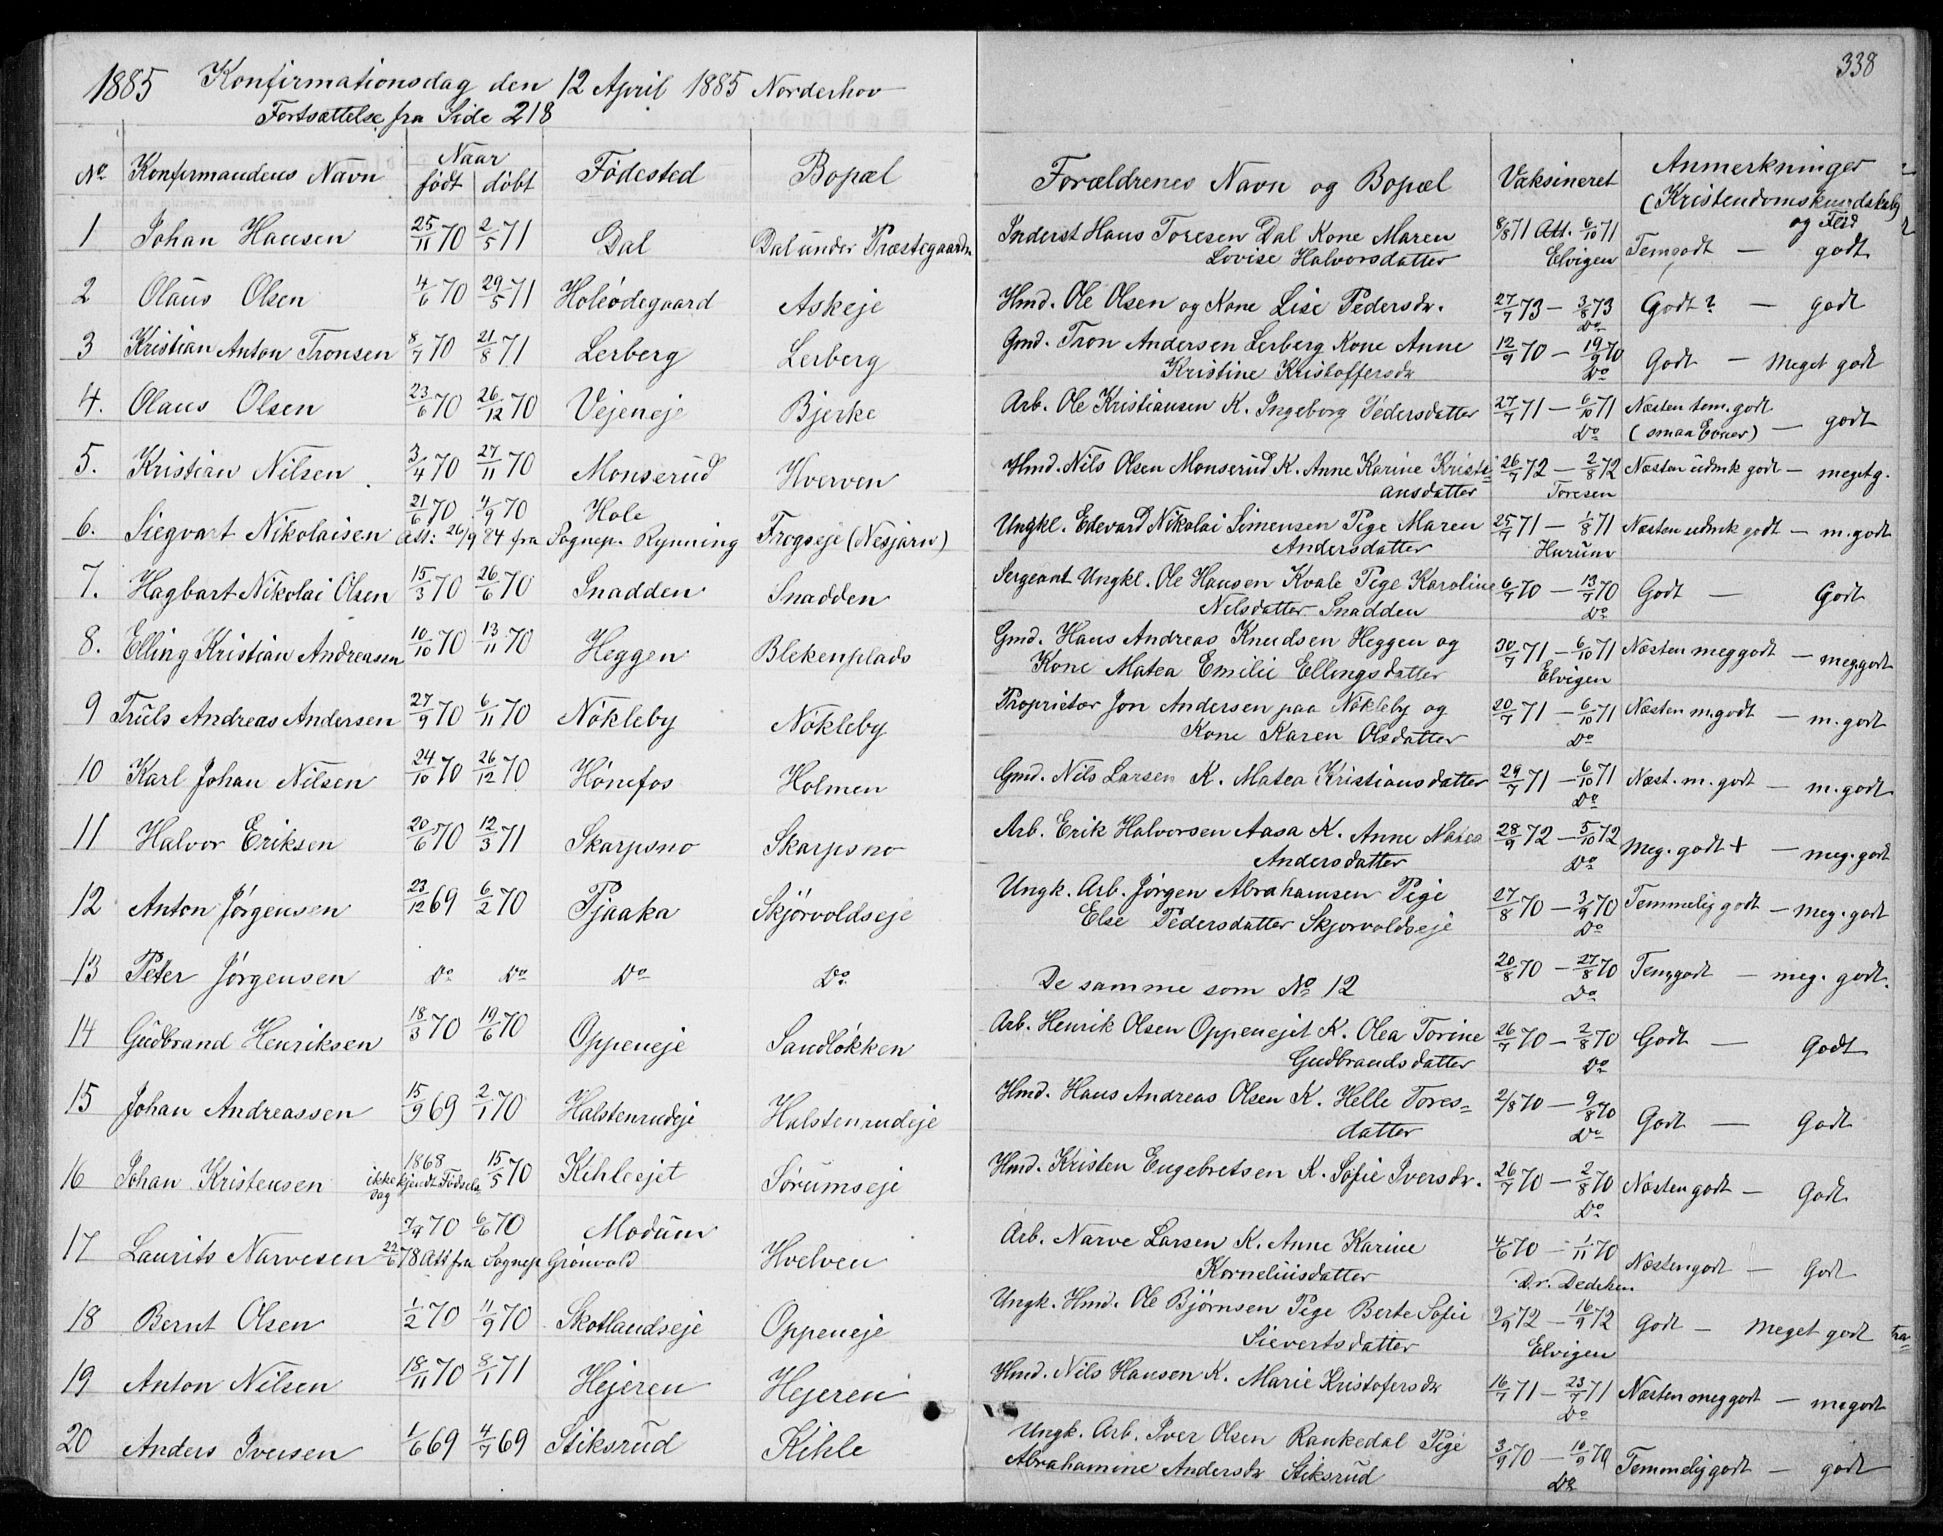 338
1885 Konfirmationsdag den 12 April 1885 Norderhov
Fortsættelse fra Side 218
No. Konfirmandens Navn Naar født døbt Fødested Bopæl Forældrenes Navn og Bopæl Vaksineret Anmerkninger (Kristendomskundskab og Flid
1 Johan Hansen 25/11 70 2/5 71 Dal Dal under Præstegaarden Inderst Hans Toresen Dal Kone Maren 8/8 71 Att. 6/10 71 Temgodt — godt
Lovise Halvorsdatter Elvigen
2 Olaus Olsen 4/6 70 29/5 71 Holeødegaard Askeje Hmd. Ole Olsen og Kone Lise Pedersdr. 27/7 73 — 3/8 73 Godt? — godt
Do
3 Kristian Anton Tronsen 8/7 70 21/8 71 Lerberg Lerberg Gmd. Tron Andersen Lerberg Kone Anne 12/9 70 — 19/9 70 Godt — Meget godt
Kristine Kristoffersdr Do
4. Olaus Olsen 23/6 70 26/12 70 Vejeneje Bjerke Arb. Ole Kristiansen K. Ingeborg Pedersdatter 27/7 71 — 6/10 71 Næsten tem. godt — godt
Do (smaa Evner)
5. Kristian Nilsen 3/4 70 27/11 70 Monserud Hverven Hmd. Nils Olsen Monserud K. Anne Karine Kristi= 26/7 72 — 2/8 72 Næsten udmk godt — meget g.
ansdatter Toresen
6. Siegvart Nikolaisen 21/6 70 4/9 70 Hole Frogseje (Nesjarn) Ungkl. Edevard Nikolai Simensen Pige Maren 25/7 71 — 1/8 71 Næsten udmk godt — m. godt
Att: 26/9 84 fra Sognep. Rynning Andersdatter Hurum
7. Hagbart Nikolai Olsen 15/3 70 26/6 70 Snadden Snadden Sergeant Ungkl. Ole Hansen Kvale Pige Karoline 6/7 70 — 13/7 70 Godt — Godt
Nilsdatter Snadden Do
8. Elling Kristian Andreasen 10/10 70 13/11 70 Heggen Blekenplads Gmd. Hans Andreas Knudsen Heggen og 30/7 71 — 6/10 71 Næsten meg godt — meg. godt
Kone Matea Emilie Ellingsdatter Elvigen
9 Truls Andreas Andersen 27/9 70 6/11 70 Nökleby Nökleby Proprietær Jon Andersen paa Nökleby og 20/7 71 — 6/10 71 Næsten m. godt — m. godt
Kone Karen Olsdatter Do
10 Karl Johan Nilsen 24/10 70 26/12 70 Hönefos Holmen Gmd. Nils Larsen K. Matea Kristiansdatter 29/7 71 — 6/10 71 Næst. m. godt — m. godt
Do
11 Halvor Eriksen 20/6 70 12/3 71 Skarpsno Skarpsno Arb. Erik Halvorsen Aasa K. Anne Matea 28/9 72 — 5/10 72 Meg. godt + — meg. godt
Andersdatter Do
12 Anton Jörgensen 23/12 69 6/2 70 Tjaaka Skjörvoldseje Ungk. Arb. Jörgen Abrahamsen Pige 27/8 70 — 3/9 70 Temmelig godt — meg. godt
Else Pedersdatter Skjorvoldseje Do
13 Peter Jörgensen Do Do Do Do De samme som No 12 20/8 70 — 27/8 70 Tem. godt — meg. godt.
Do
14 Gudbrand Henriksen 18/3 70 19/6 70 Oppeneje Sandlökken Arb. Henrik Olsen Oppenejet K. Olea Torine 26/7 70 — 2/8 70 Godt — Godt
Gudbrandsdatter Do
15 Johan Andreassen 15/9 69 2/1 70 Halstenrudeje Halstenrudeje Hmd. Hans Andreas Olsen K. Helle Tores= 2/8 70 — 9/8 70 Godt — Godt
datter Do
16 Johan Kristensen 1868 ikke kjendt Födsels dag 15/5 70 Kihleejet Sörumseje Hmd. Kristen Engebretsen K. Sofie Iversdr. 26/7 70 — 2/8 70 Næsten godt — Godt
Do
17 Laurits Narvesen 7/4 70 6/6 70 Modum Hvelven Arb. Narve Larsen K. Anne Karine 4/6 70 — 1/11 70 Næsten godt — Godt
22/6 78 Att fra Sognep Grönvold Korneliusdatter Dr. Dedichen
18 Bernt Olsen 1/2 70 11/9 70 Skotlandseje Oppeneje Ungk. Hmd. Ole Björnsen Pige Berte Sofie 9/9 72 — 16/9 72 Godt — Meget godt
Sievertsdatter Elvigen
19 Anton Nilsen 18/11 70 8/1 71 Hejeren Hejeren Hmd. Nils Hansen K. Marie Kristofersdr 16/7 71 — 23/7 71 Næsten meg godt — megodt
Do
20 Anders Iversen 1/6 69 4/7 69 Stiksrud Kihle Ungk. Arb. Iver Olsen Rankedal Pige 3/9 70 — 10/9 70 Temmelig godt — godt
Abrahamine Andersdr Stiksrud Do